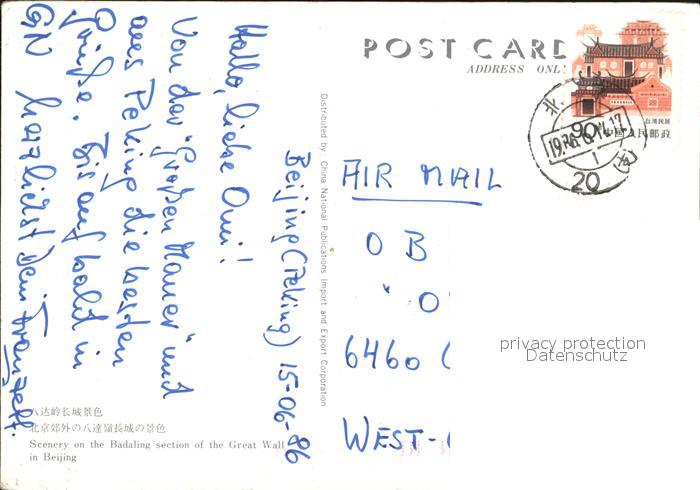 POST CARD
ADDRESS ONL
台湾民居
中国人民邮政
90
北
1986.6.17.17
1
20
(支)
Beijing (Peking) 15-06-86
Hallo, liebe Omi!
Von der "Großen Mauer" und
aus Peking die besten
Grüße. Bis auf bald in
GN herzlichst Dein
Distributed by: China National Publications Import and Export Corporation
AIR MAIL
O B
" O
6460
WEST-
privacy protection
Datenschutz
八达岭长城景色
北京郊外の八達嶺長城の景色
Scenery on the Badaling section of the Great Wall
in Beijing